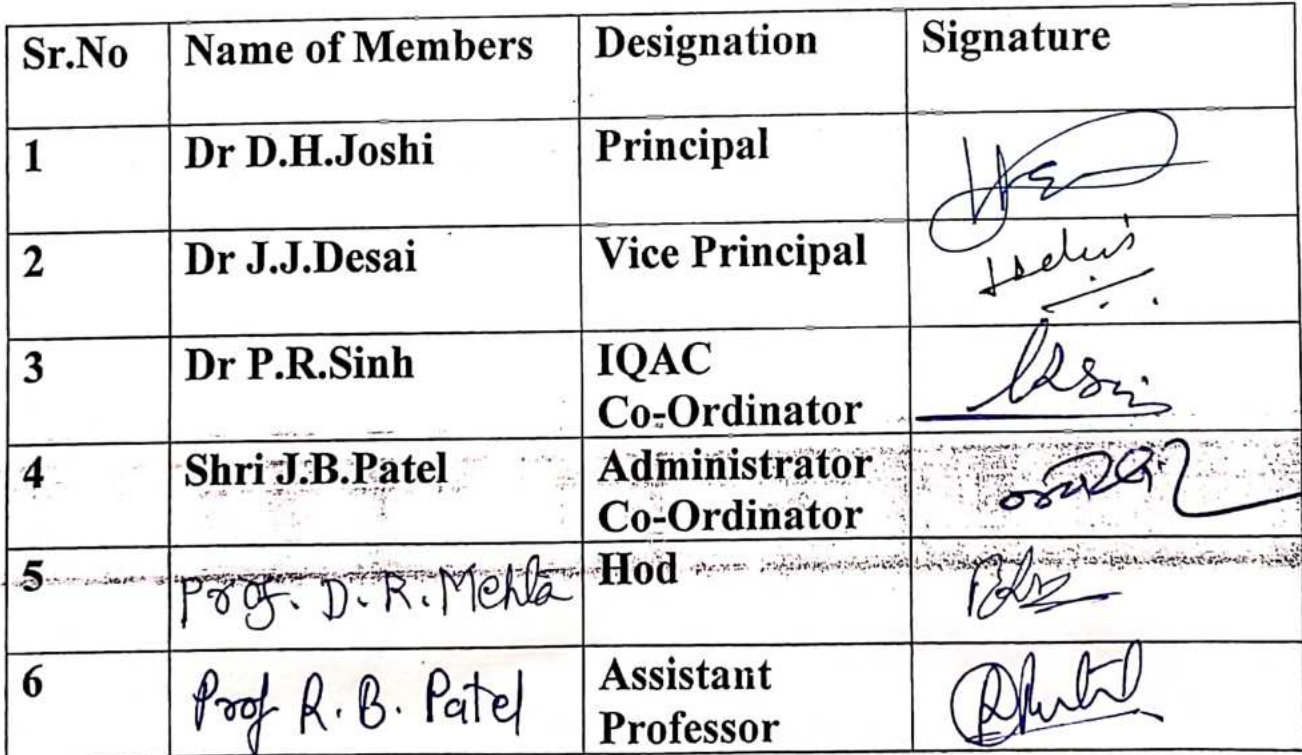 Sr.No Name of Members Designation Signature
1 Dr D.H.Joshi Principal
2 Dr J.J.Desai Vice Principal
3 Dr P.R.Sinh IQAC
Co-Ordinator
4 Shri J.B.Patel Administrator
Co-Ordinator
5 Prof. D. R. Mehta Hod
6 Prof R. B. Patel Assistant
Professor